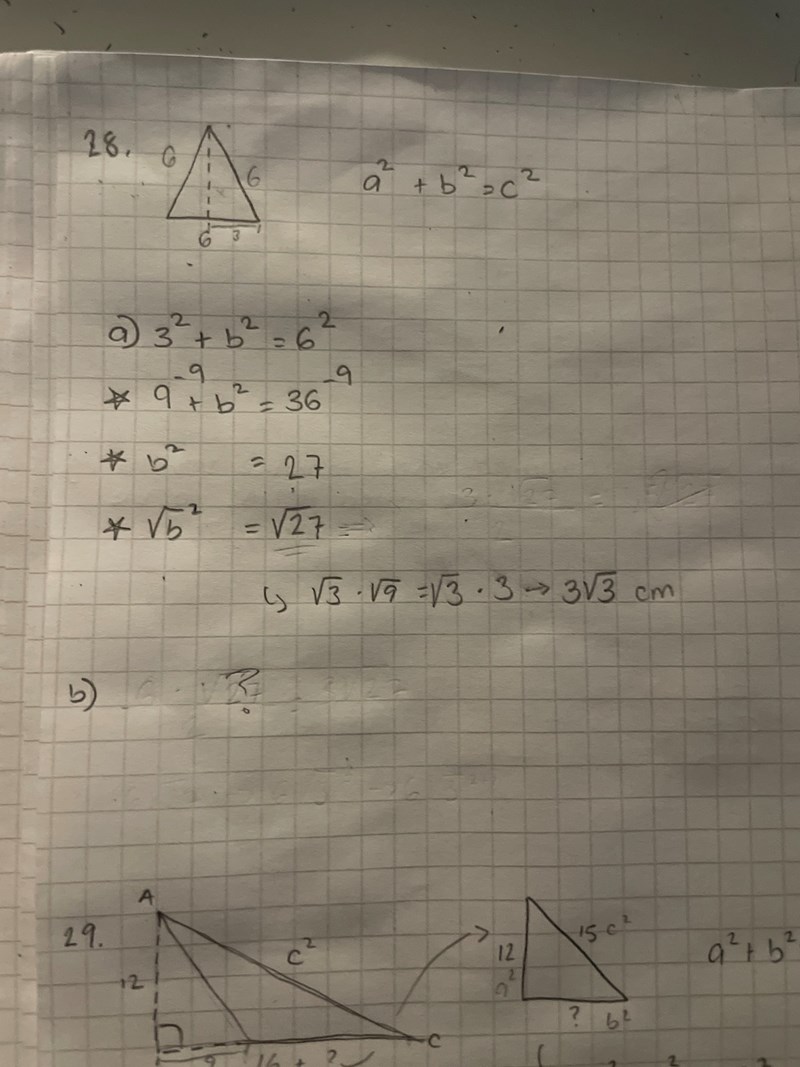 28.
6
6
6 3
a² + b² = c²
a) 3² + b² = 6²
* 9⁻⁹ + b² = 36⁻⁹
* b² = 27
* √b² = √27 ⇒
↳ √3 · √9 = √3 · 3 → 3√3 cm
b) ?
29.
A
12
c²
C
9 16 + ?
12
a²
15 c²
? b²
a² + b²